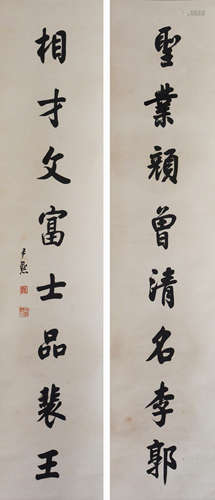 聖業顏曾清名李郭
相才文富士品裴王
尹默